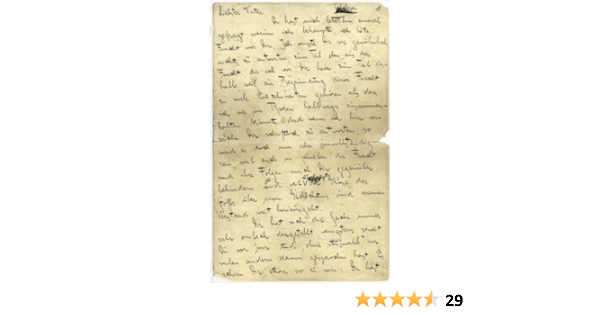 Liebster Vater 1
Du hast mich letzthin einmal
gefragt warum ich behaupte, ich hätte
Furcht vor Dir. Ich wusste Dir wie gewöhnlich
nichts zu antworten zum Teil eben aus der
Furcht die ich vor Dir habe zum Teil des-
halb weil zur Begründung dieser Furcht
zu viele Einzelheiten gehören als dass
ich sie im Reden halbwegs zusammen-
halten könnte. Und wenn ich hier ver-
suche Dir schriftlich zu antworten so
wird es doch nur sehr unvollständig
sein weil auch im Schreiben die Furcht
und ihre Folgen mich Dir gegenüber
behindern und weil die Grösse des
Stoffs über mein Gedächtnis und meinen
Verstand weit hinausgeht.
Dir hat sich die Sache immer
sehr einfach dargestellt wenigstens soweit
Du vor mir und, ohne Auswahl, vor
vielen andern davon gesprochen hast. Es
schien Dir etwa so zu sein: Du hast
29